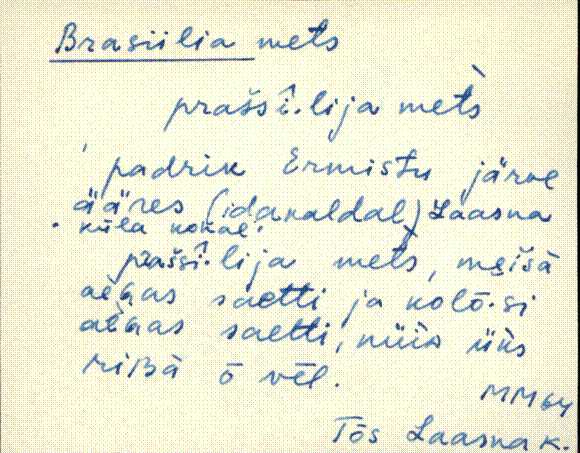 Brasiilia mets
prašsî·lija mets̀
padrik Ermistu järve
ääres (idakaldal) Laasna
küla kohal.
prašsî·lija mets, mẽisà
aẽGas saetti ja kolõ·si
aẽGas saetti, nüìD üks
riBà õ vẽl.
MM64
Tõs Laasna k.